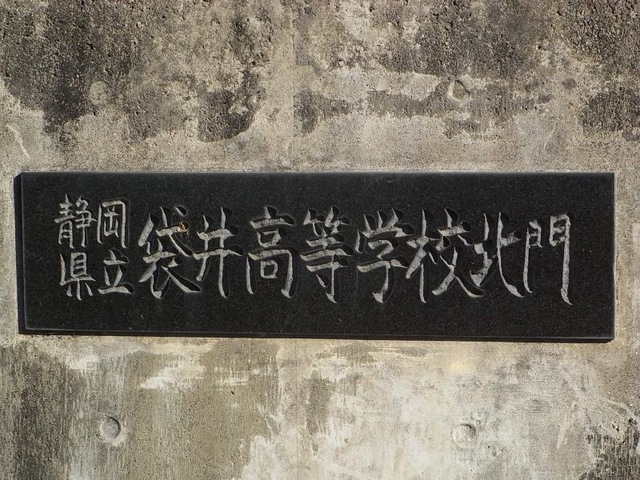 静岡県立袋井高等学校北門